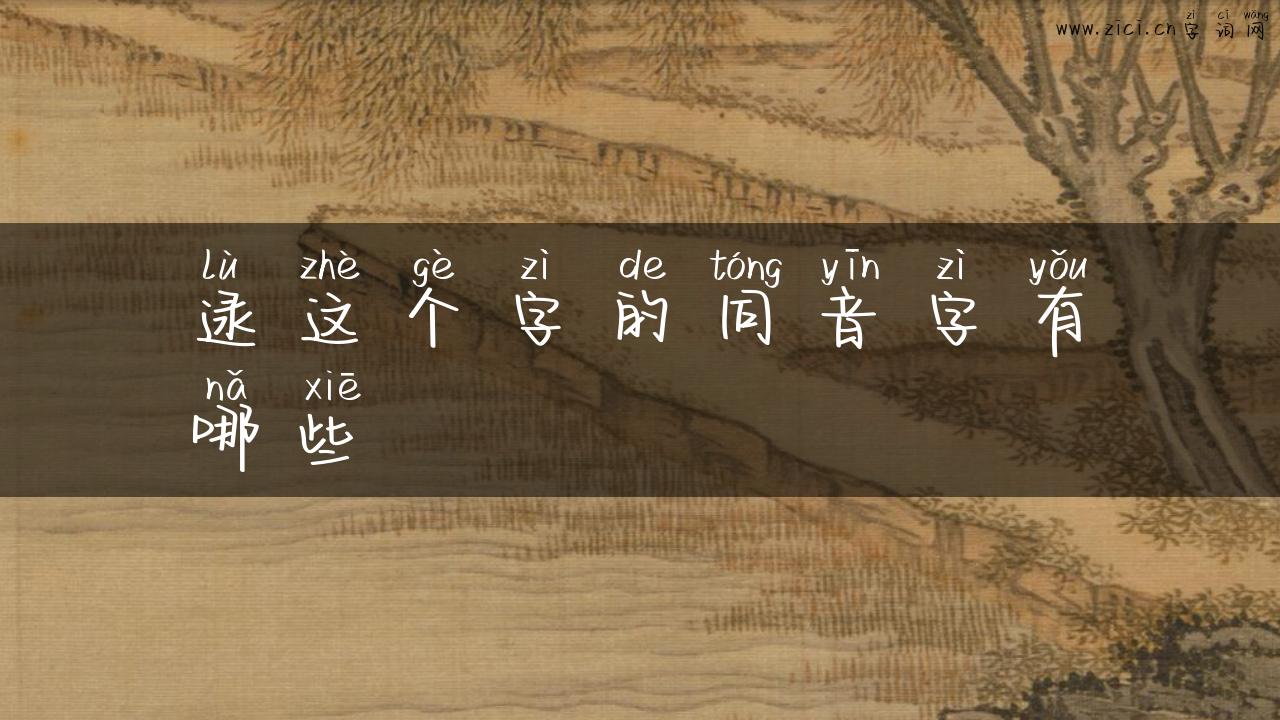 zì cí wǎng
www.zici.cn字词网
lù zhè gè zì de tóng yīn zì yǒu
逯这个字的同音字有
nǎ xiē
哪些